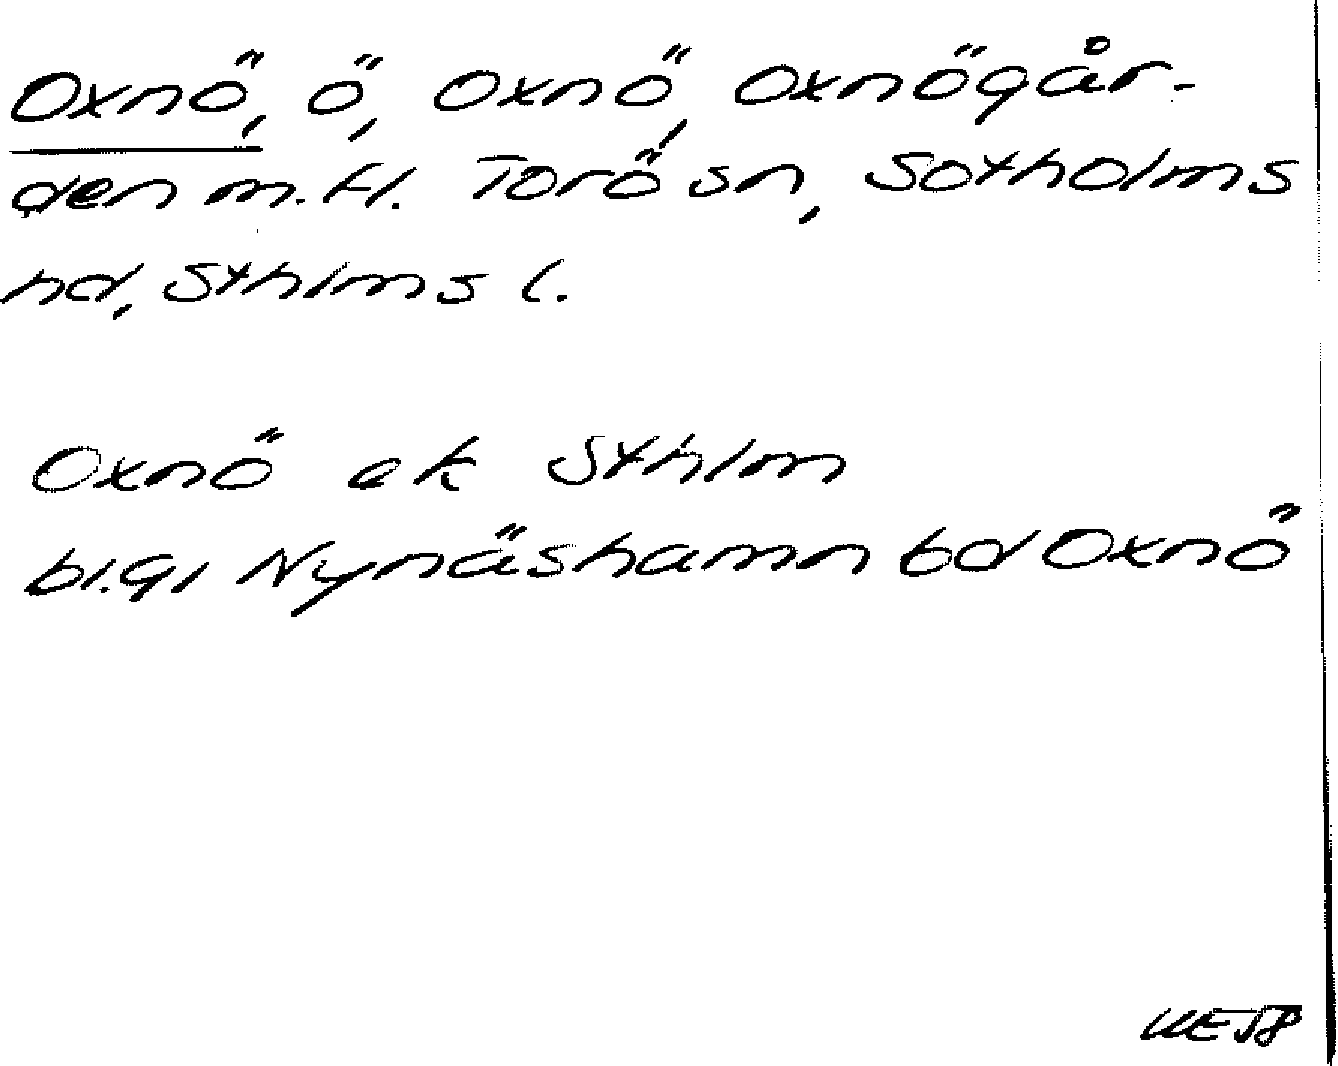 Oxnö, ö, Oxnö, Oxnögår-
den m.fl. Torö sn, Sotholms
hd, Sthlms l.
Oxnö ek Sthlm
bl.gl Nynäshamn bd Oxnö